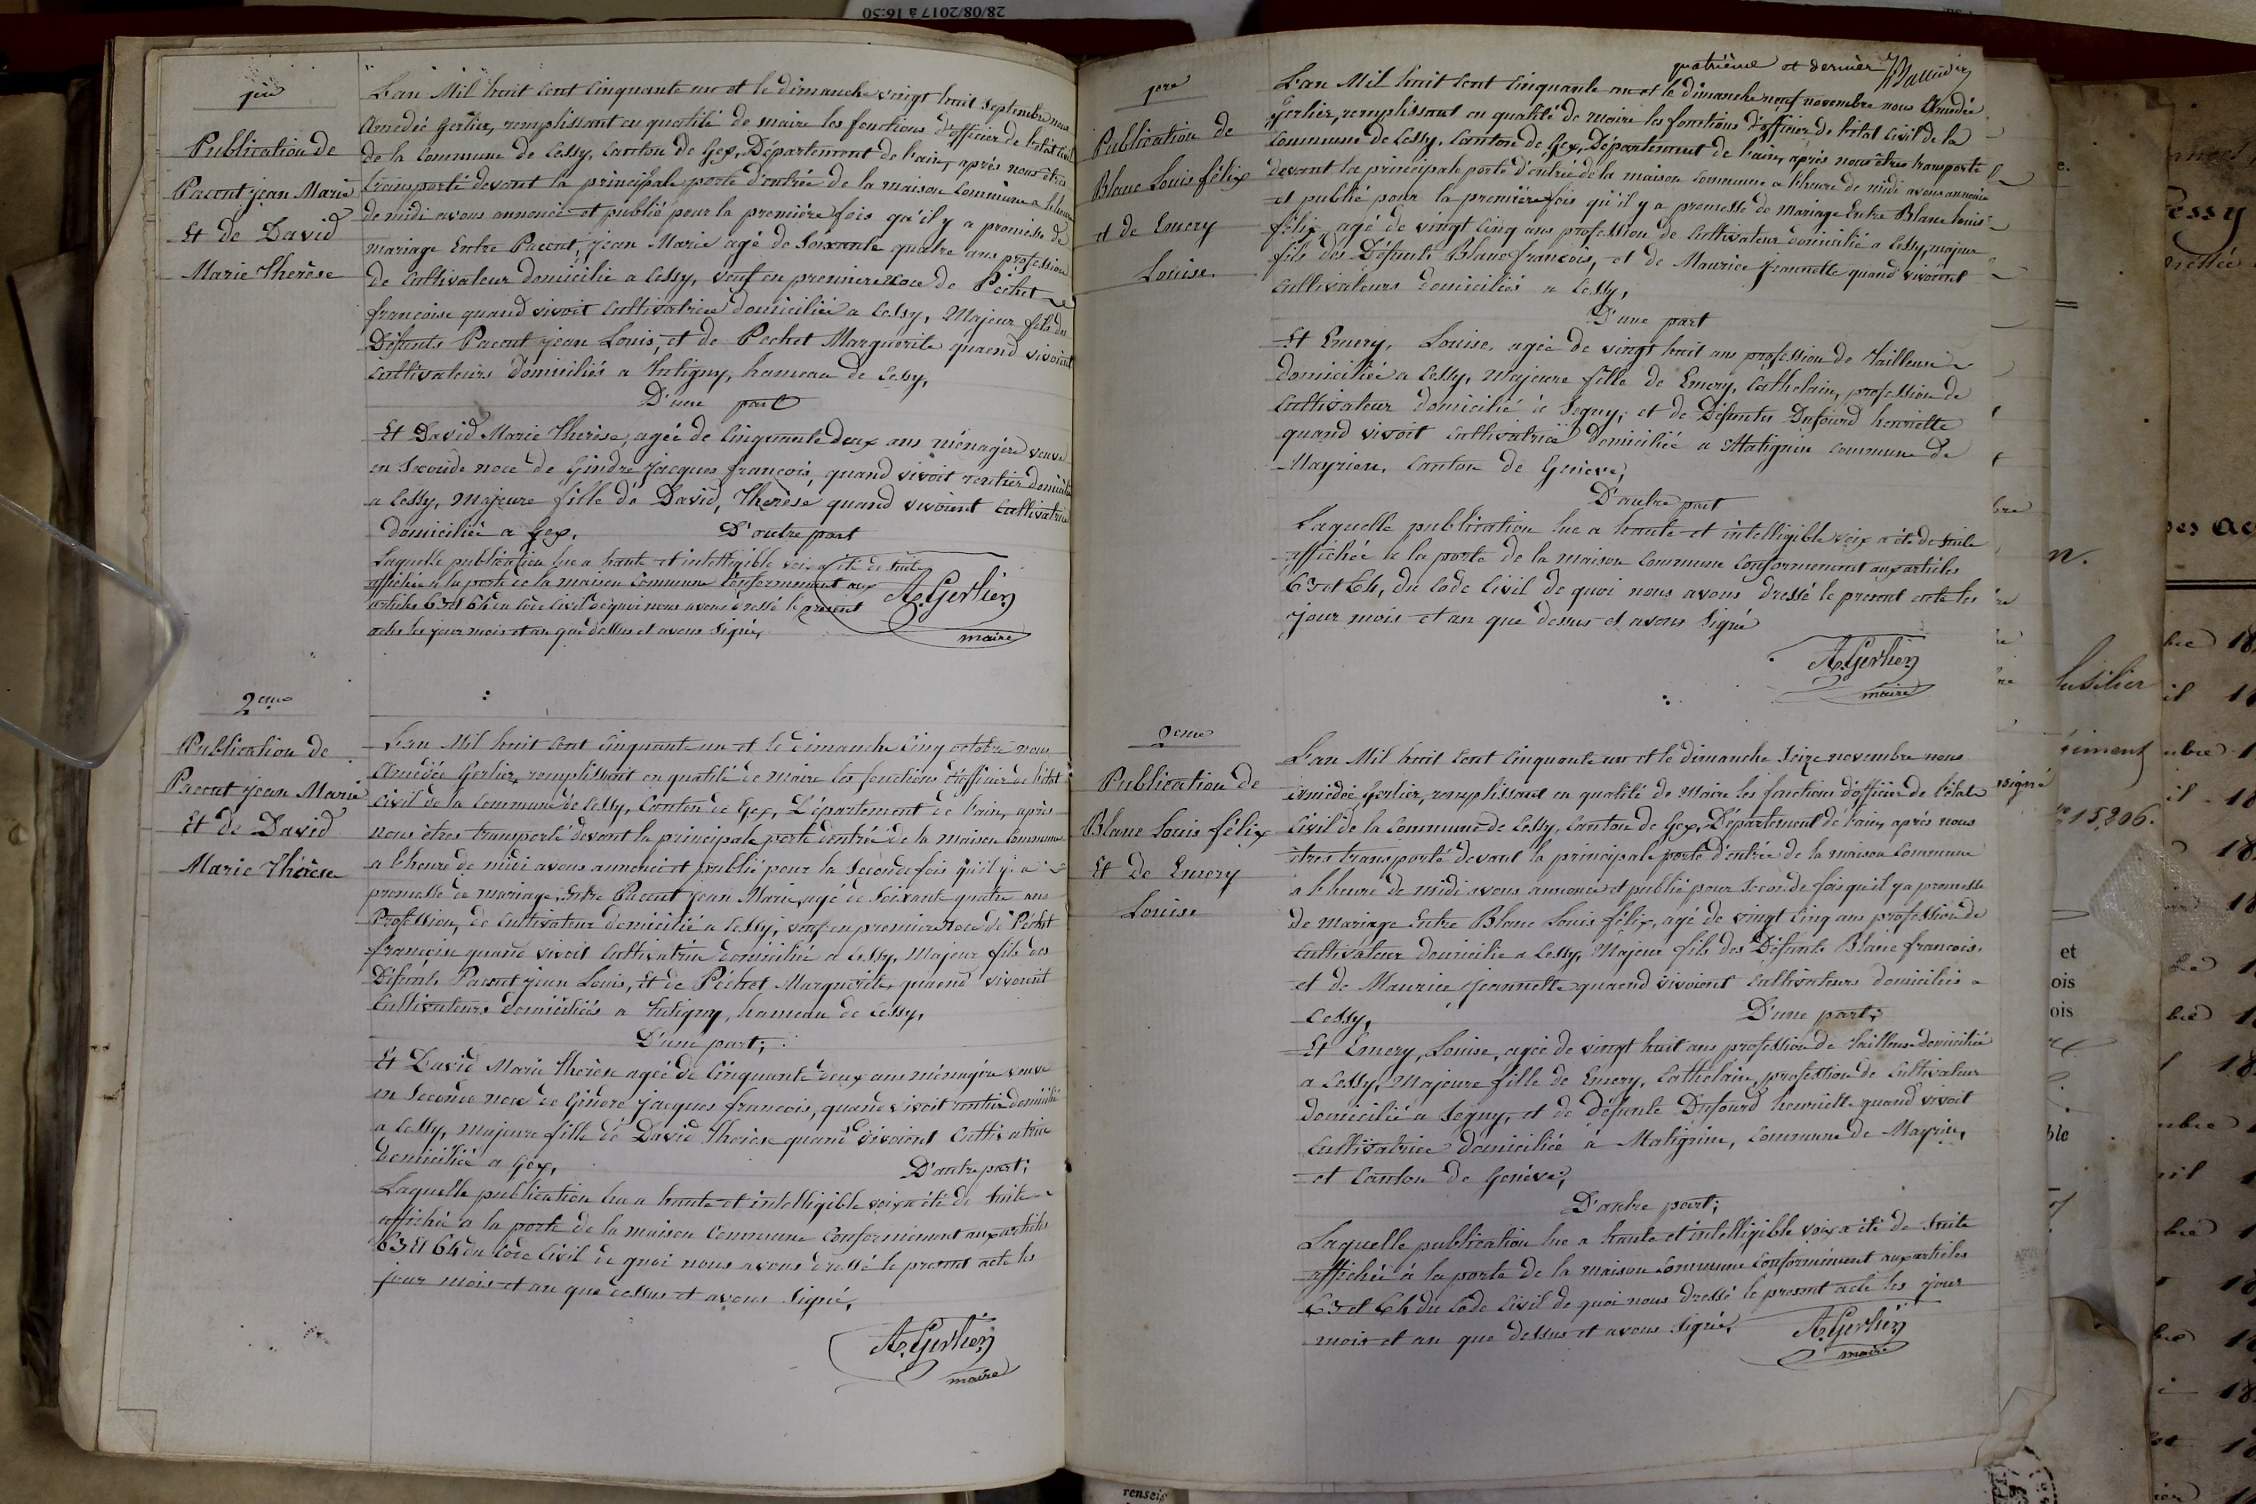 28/08/2017 à 16:50
1ère
Publication de
Pacout jean Marie
Et de David
Marie Thérèse
L'an Mil huit cent cinquante un et le dimanche vingt huit septembre nous
Amedée Gerlier, remplissant en qualité de maire les fonctions d'officier de l'état civil
de la Commune de Cessy, Canton de Gex, Département de l'ain, après nous êtres
transporté devant la principale porte d'entrée de la maison Commune a l'heure
de midi avons annoncé et publié pour la première fois qu'il y a promesse de
mariage Entre Pacout, jean Marie agé de Soixante quatre ans profession
de Cultivateur domicilié a Cessy, veuf en premiere noce de Péchet
francoise quand vivoit Cultivatrice domiciliée a Cessy, Majeur fils des
Défunts Pacout jean Louis, et de Pechet Marguerite quand vivoient
Cultivateurs domiciliés a Tutigny, hameau de Cessy,
D'une part
Et David Marie Thérèse, agée de Cinquante deux ans ménagère veuve
en Seconde noce de Gindre jacques francois, quand vivoit rentier domicilié
a Cessy, majeure fille de David, Therèse quand vivoient Cultivatrice
domiciliée a Gex, D'autre part
Laquelle publication lue a haute et intelligible voix a été de suite
affichée a la porte de la maison Commune Conformément aux
articles 63 et 64 du Code Civil de quoi nous avons dressé le present
acte les jour mois et an que dessus et avons Signé,
A. Gerlier
maire
2eme
Publication de
Pacout jean Marie
Et de David
Marie Thérèse
L'an Mil huit Cent Cinquante un et le dimanche Cinq octobre nous
Amédée Gerlier, remplissant en qualité de maire les fonctions d'officier de l'état
Civil de la Commune de Cessy, Canton de Gex, Département de l'ain, après
nous êtres transporté devant la principale porte d'entrée de la maison Commune
a l'heure de midi avons annoncé et publié pour la Seconde fois qu'il y a
promesse de mariage, Entre Pacout jean Marie, agé de Soixante quatre ans
Profession, de Cultivateur domicilié a Cessy, veuf en premiere noce de Péchet
françoise quand vivoit Cultivatrice domiciliée a Cessy, Majeur fils des
Défunts Pacout jean Louis, et de Péchet Marguerite, quand vivoient
Cultivateurs domiciliés a Tutigny, hameau de Cessy,
D'une part;
Et David Marie Thérèse agée de Cinquante deux ans ménagère veuve
en Seconde noce de Gindre jacques francois, quand vivoit rentier domicilié
a Cessy, majeure fille de David Thérèse quand vivoient Cultivatrice
domiciliée a Gex, D'autre part;
Laquelle publication lue a haute et intelligible voix a été de Suite
affiché a la porte de la maison Commune Conformément aux articles
63 et 64 du Code Civil de quoi nous avons dressé le present acte les
jour mois et an que dessus et avons Signé,
A. Gerlier
maire
quatrième et dernier
1ere
Publication de
Blanc Louis félix
et de Emery
Louise.
L'an Mil huit Cent Cinquante un et le dimanche neuf novembre nous Amédée
Gerlier, remplissant en qualité de maire les fonctions d'officier de l'état Civil de la
Commune de Cessy, Canton de Gex, Département de l'ain, après nous êtres transporté
devant la principale porte d'entrée de la maison Commune a l'heure de midi avons annoncé
et publié pour la première fois qu'il y a promesse de Mariage Entre Blanc Louis
félix, agé de vingt Cinq ans profession de Cultivateur domicilié a Cessy, majeur
fils des Défunts Blanc francois, et de Maurice Jeannette quand vivoient
Cultivateurs domiciliés a Cessy,
D'une part
Et Emery, Louise, agée de vingt huit ans profession de Tailleuse
domiciliée a Cessy, Majeure fille de Emery, Cathelain, profession de
Cultivateur domicilié à Segny, et de Défunte Dufourd henriette
quand vivoit Cultivatrice domiciliée a Matignin commune de
Mayrien, Canton de Genève,
D'autre part
Laquelle publication lue a haute et intelligible voix a été de suite
affichée à la porte de la maison Commune Conformément aux articles
63 et 64, du Code Civil de quoi nous avons dressé le present acte les
jour mois et an que dessus et avons Signé
A. Gerlier
maire
2eme
Publication de
Blanc Louis félix
Et de Emery
Louise
L'an Mil huit Cent Cinquante un et le dimanche Seize novembre nous
Amédée Gerlier, remplissant en qualité de Maire les fonctions d'officier de l'état
Civil de la Commune de Cessy, Canton de Gex, Département de l'ain, après nous
êtres transporté devant la principale porte d'entrée de la maison Commune
a l'heure de midi avons annoncé et publié pour Seconde fois qu'il y a promesse
de mariage Entre Blanc Louis félix, agé de vingt Cinq ans profession de
Cultivateur domicilié a Cessy, Majeur fils des Défunts Blanc francois,
et de Maurice Jeannette quand vivoient Cultivateurs domiciliés a
Cessy, D'une part;
Et Emery, Louise, agée de vingt huit ans profession de Tailleuse domiciliée
a Cessy, Majeure fille de Emery, Cathelain, profession de Cultivateur
domicilié a Segny, et de Défunte Dufourd henriette quand vivoit
Cultivatrice domiciliée à Matignin, Commune de Mayrin,
et Canton de Genève,
D'autre part;
Laquelle publication lue a haute et intelligible voix a été de Suite
affichée à la porte de la maison Commune Conformément aux articles
63 et 64 du Code Civil de quoi nous dressé le present acte les jour
mois et an que dessus et avons Signé,
A. Gerlier
maire
fusilier
15,206.
et
ois
ois
ble
renseig